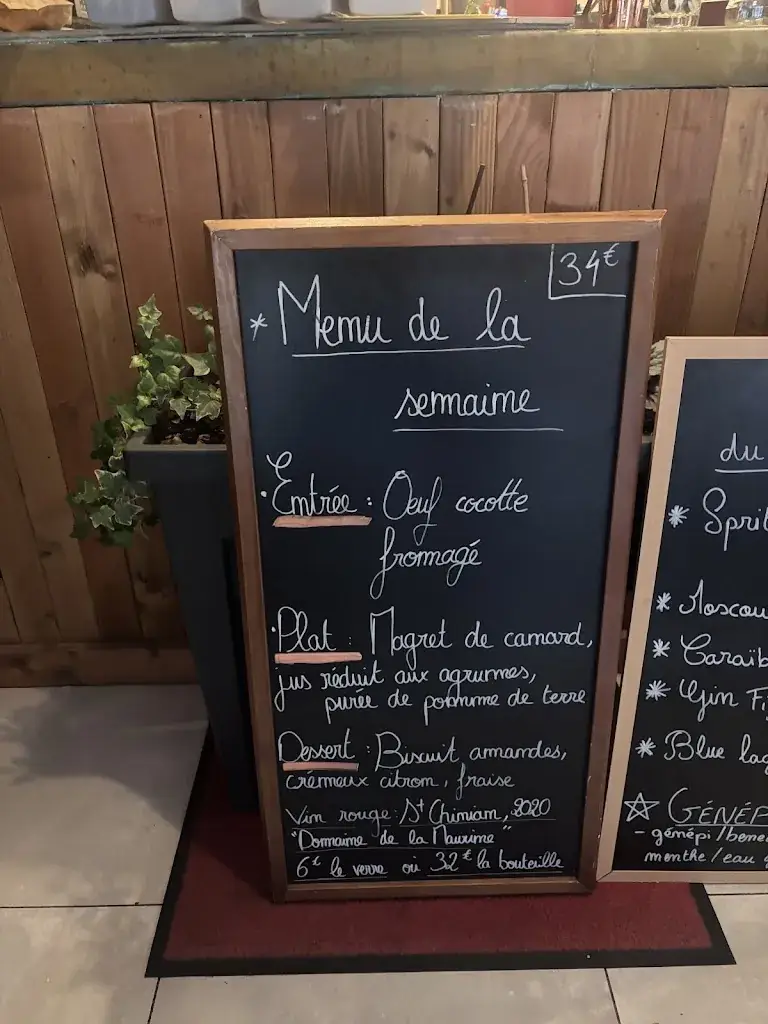 34€
* Menu de la
semaine
· Entrée : Oeuf cocotte
fromagé
· Plat : Magret de canard,
jus réduit aux agrumes,
purée de pomme de terre
Dessert : Biscuit amandes,
crémeux citron, fraise
Vin rouge : St Chinian, 2020
"Domaine de la Maurine"
6€ le verre ou 32€ la bouteille
du
* Sprit
* Moscou
* Caraïb
* Gin Fi
* Blue lag
☆ GÉNÉP
- génépi / bene
menthe / eau g